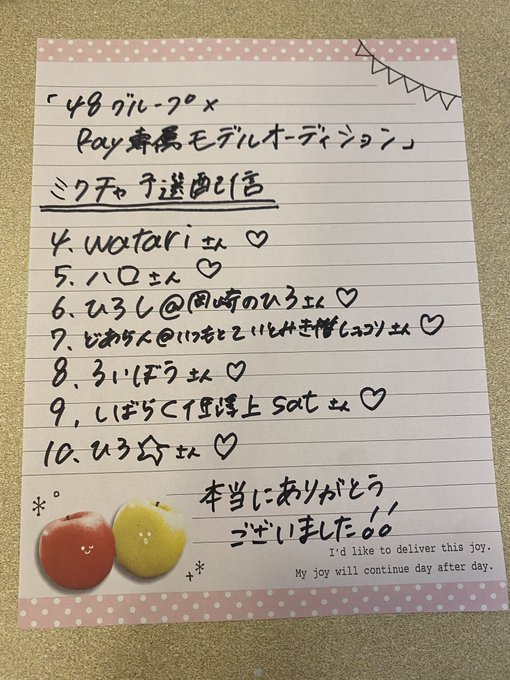 「48グループ×
Ray専属モデルオーディション」
ミクチャ予選配信
4. watariさん♡
5. ハロさん♡
6. ひろし@岡崎のひろさん♡
7. どあらん@いつもとていとみき推しココリさん♡
8. ろいぼうさん♡
9. しばらく低浮上satさん♡
10. ひろ☆さん♡
本当にありがとう
ございました!!
I'd like to deliver this joy.
My joy will continue day after day.